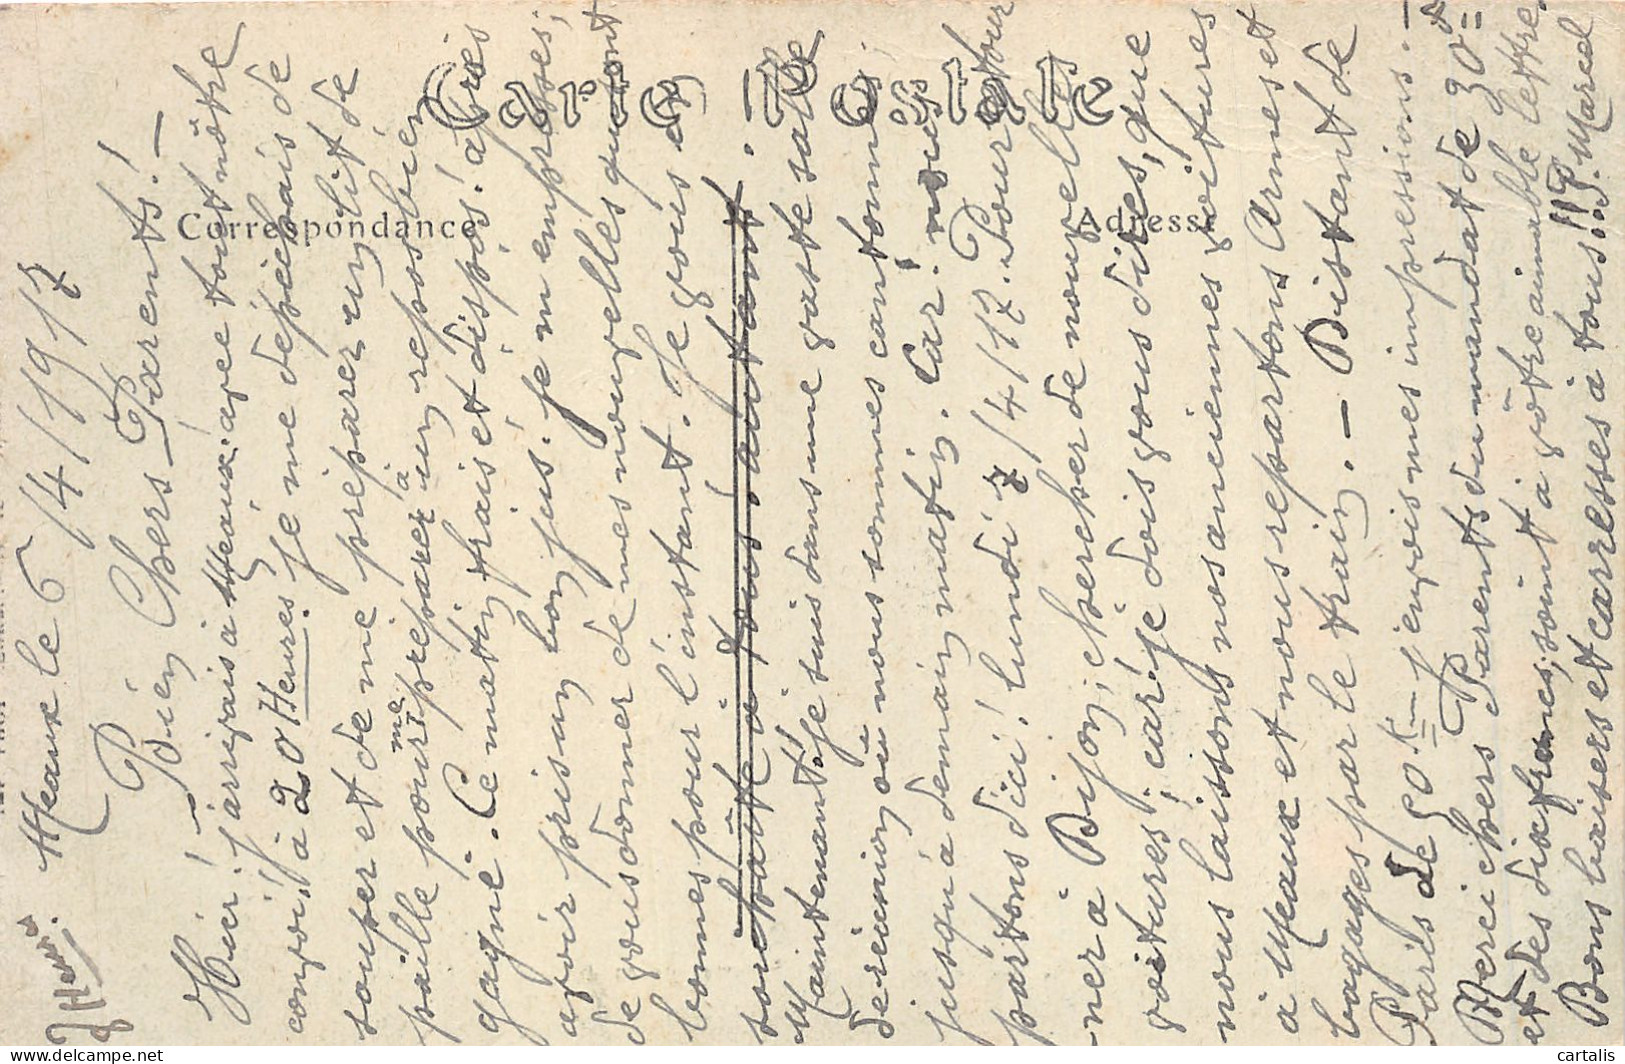 Carte Postale
Correspondance
Adresse
8 Heures.
Meaux le 6/4/1917
Bien Chers Parents! —
Hier! j'arrivais à Meaux. avec tout nôtre
convoi, à 20 Heures! je me dépêchais de
souper et de me préparer un lit de
paille pour me préparer à un repos bien
gagné. Ce matin frais et dispos! après
avoir pris un bon jus. je m'empresse;
de vous donner de mes nouvelles qui sont
bonnes pour l'instant. Je vous en
souhaite à tous autant.
Maintenant! Je suis dans une vaste salle
de reunion où nous sommes cantonné
jusqu'à demain matin. Car! nous
partons d'ici! lundi 7/4/17. Pour
mener à Dijon; chercher de nouvelles
voitures! car! je dois vous dire, que
nous laissons nos anciennes voitures
à Meaux et nous repartons Armes et
bagages par le train. — Distant de
Paris de 50 Km j'envois mes impressions. —
Merci chers Parents du mandat de 30 =
et des dix francs, joint à vôtre aimable lettre.
Bons baisers et carresses à tous!! Marcel
cartalis